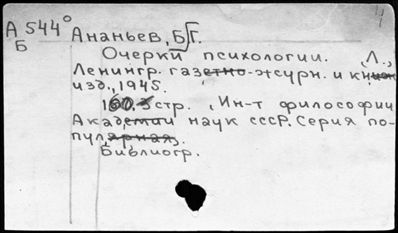 4
А 544°
Б
Ананьев, Б Г.
Очерки психологии. Л.,
Ленингр. газетно-журн. и книж
изд., 1945.
160. стр. Ин-т философии
Академии наук СССР. Серия по-
пулярная.
Библиогр.